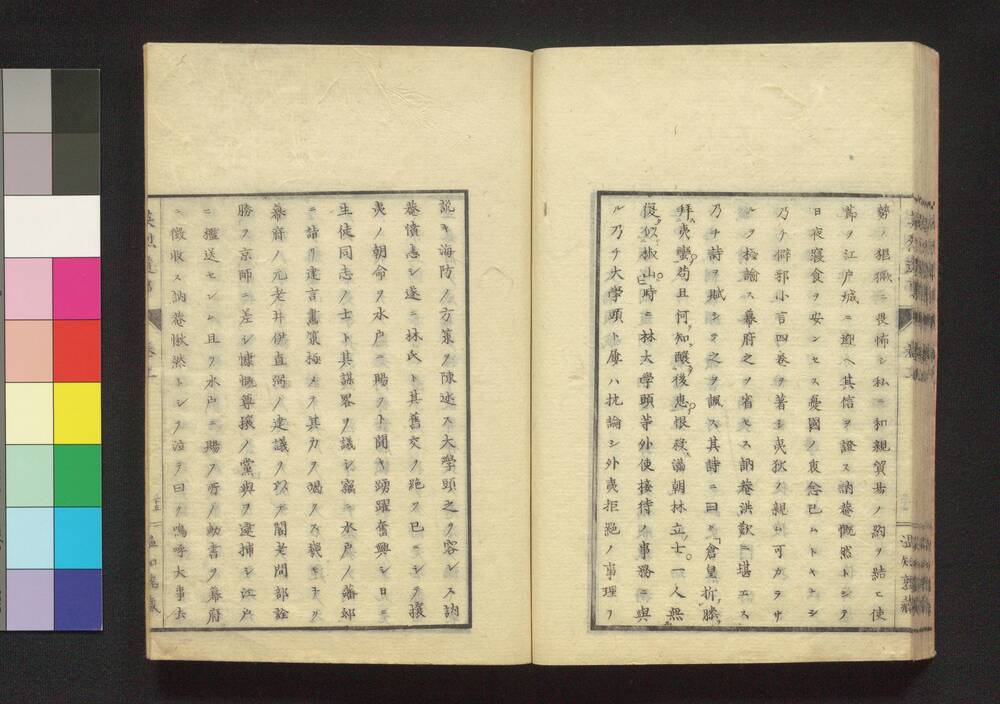 勢ノ猖獗ニ畏怖シ私ニ和親貿昜ノ約ヲ結ヒ使
節ヲ江戸城ニ迎ヘ其信ヲ證ス訥菴慨然トシテ
日夜寢食ヲ安ンセス憂國ノ衷念已ムトキナシ
乃チ闢邪小言四巻ヲ著シ夷狄ノ親ム可カラサ
ルヲ極論ス幕府之ヲ省セス訥菴洪歎ニ堪エス
乃チ詩ヲ賦シテ之ヲ諷ス其詩ニ曰ク倉皇折膝
拜夷蠻苟且何知醸後患根殺滿朝林立士一人無
復似椒山時ニ林大學頭等外使接待ノ事務ニ與
ル乃チ大学頭ト屢ハ抗論シ外夷拒絶ノ事理ヲ
説キ海防ノ方策ヲ陳述ス大學頭之ヲ容レス訥
菴憤恚シ遂ニ林氏ト其舊交ノ絶ツ已ニシテ攘
夷ノ朝命ヲ水戸ニ賜フト聞キ踴躍奮興シ日ニ
生徒同志ノ士ト其謀畧ヲ議シ竊ニ水戸ノ藩邸
ニ詣リ建言畫策極メテ其力ヲ竭ス旣ニシテ
幕府ノ元老井伊直弼ノ建議ヲ以テ閣老間部詮
勝ヲ京師ニ差シ慷慨尊攘ノ黨與ヲ逮捕シ江戸
ニ檻送セシム且ツ水戸ニ賜フ所ノ勅書ヲ幕府
ニ徴收ス訥菴愀然トシテ泣テ曰ク嗚呼大事去